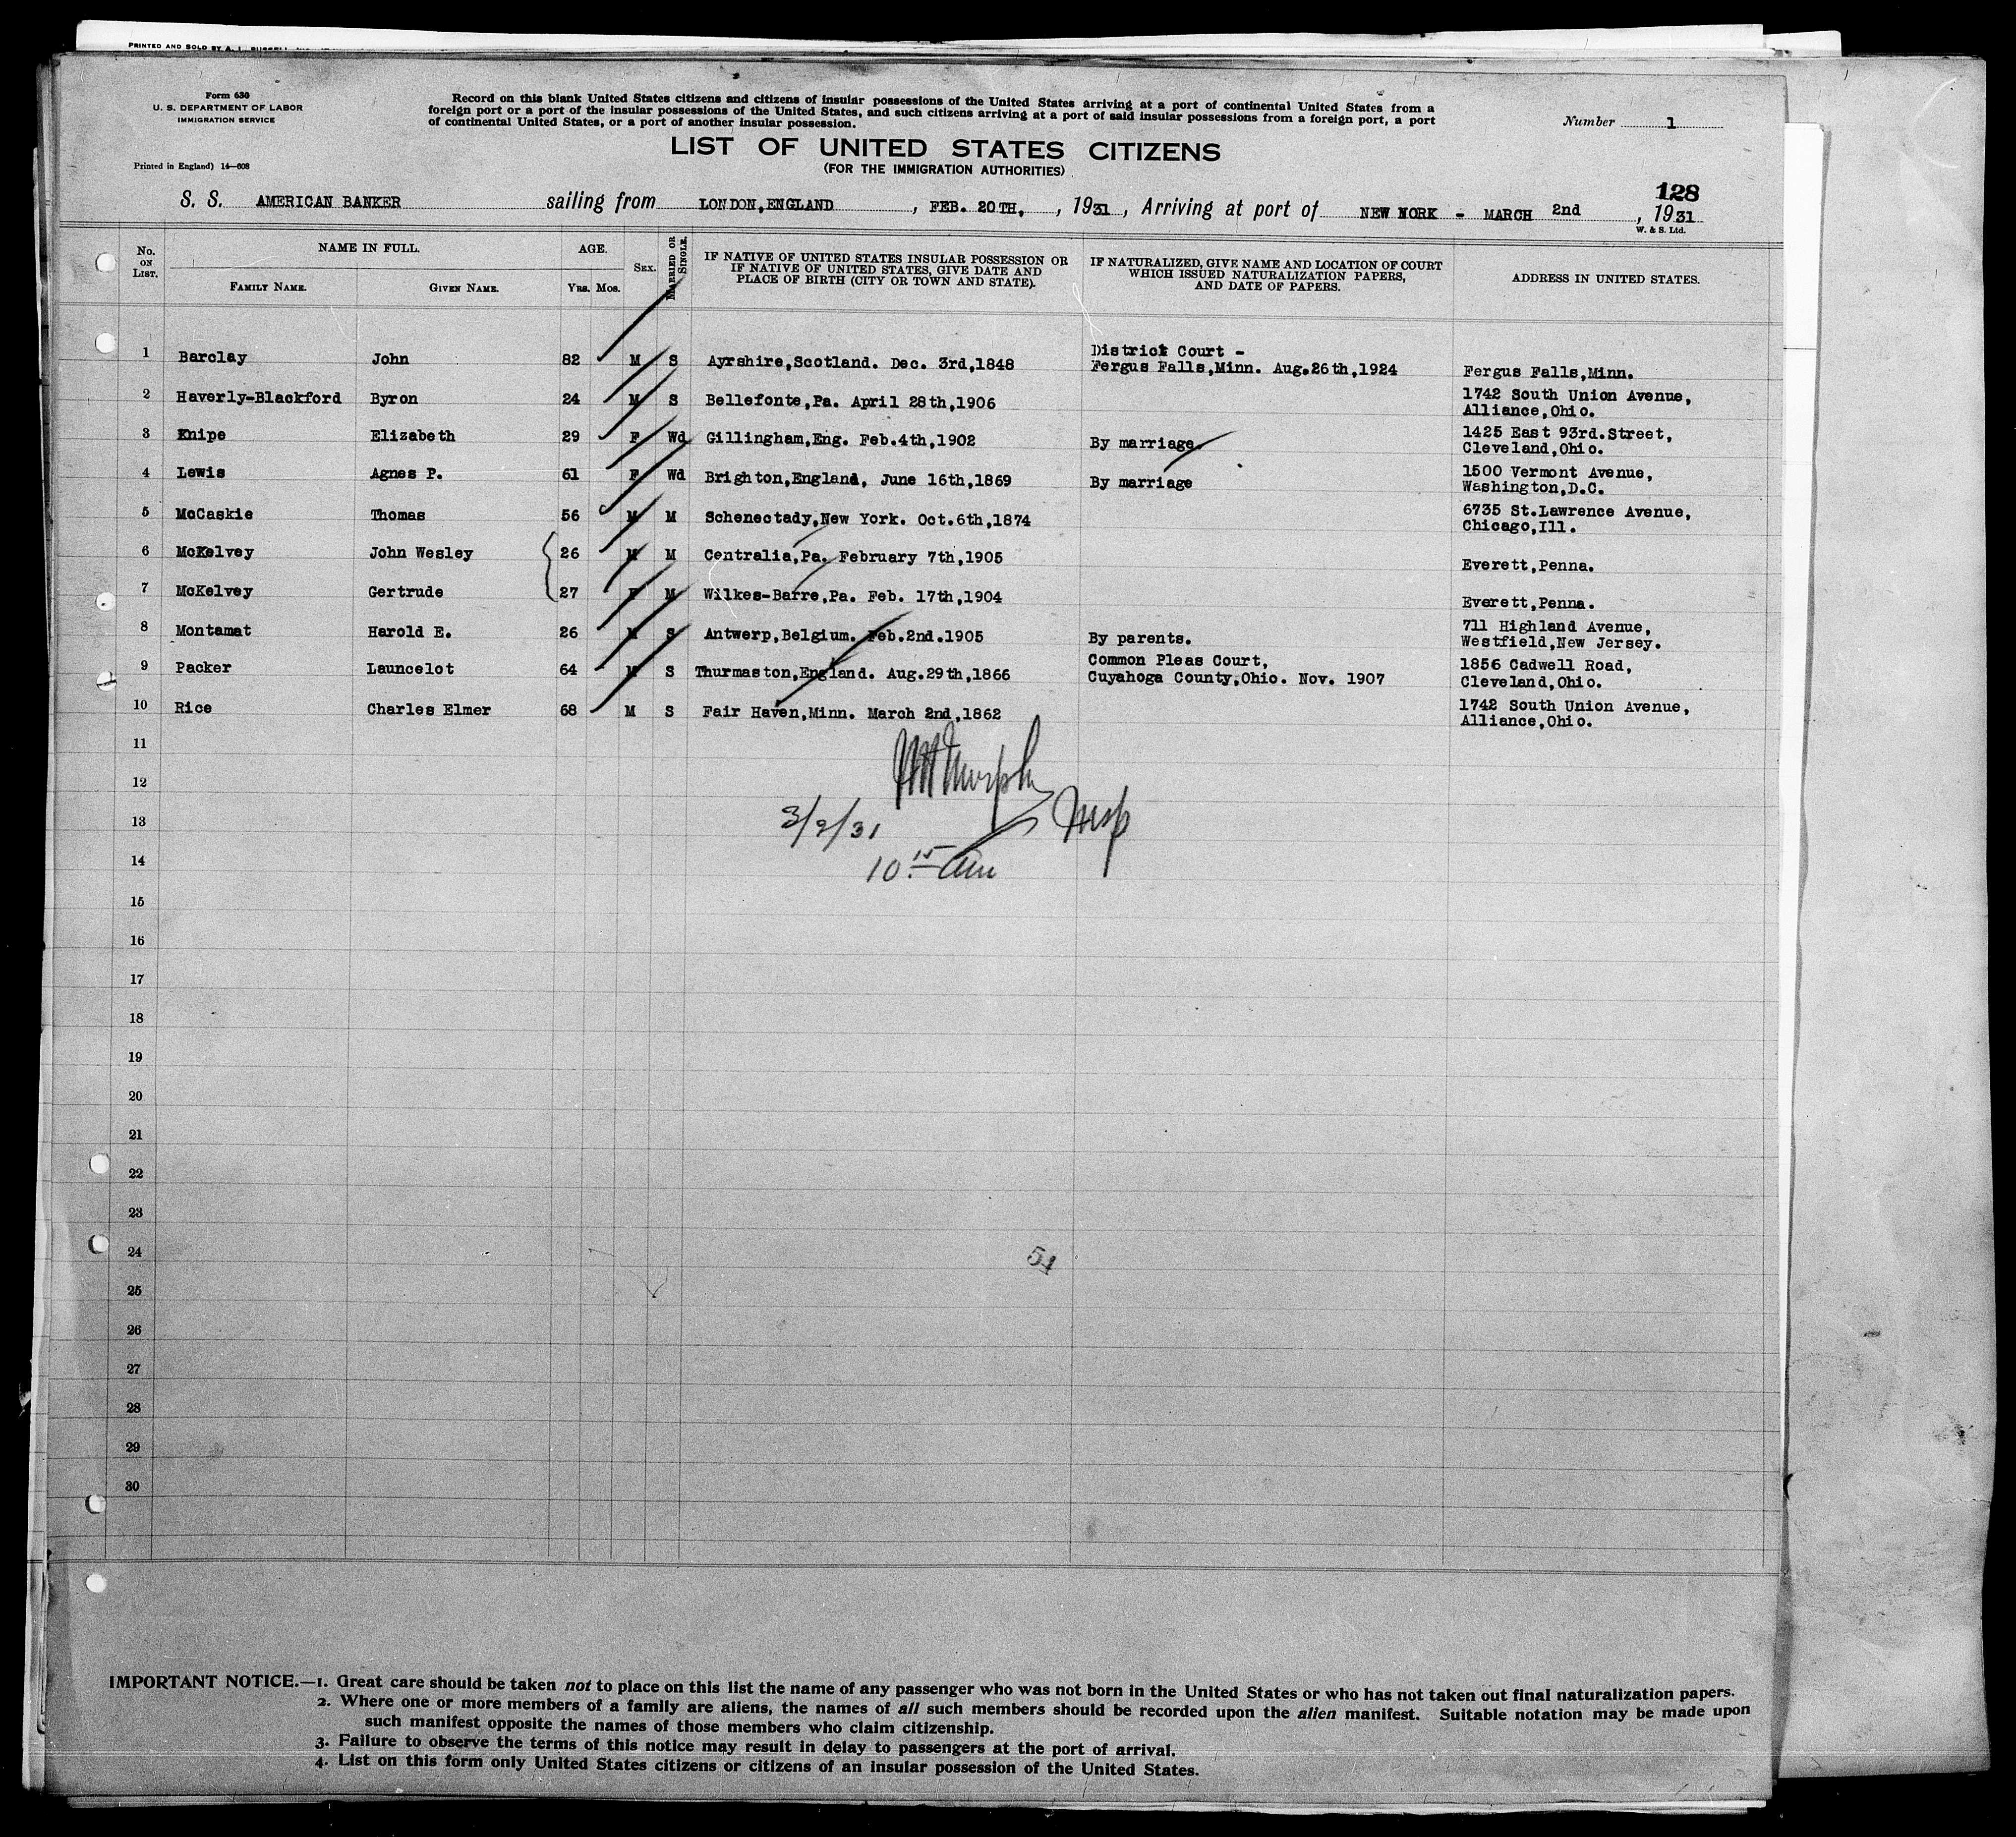 PRINTED AND SOLD BY A. L. RUSSELL, INC.
Form 630
U. S. DEPARTMENT OF LABOR
IMMIGRATION SERVICE
Printed in England) 14—608
Record on this blank United States citizens and citizens of insular possessions of the United States arriving at a port of continental United States from a
foreign port or a port of the insular possessions of the United States, and such citizens arriving at a port of said insular possessions from a foreign port, a port
of continental United States, or a port of another insular possession.
Number 1
LIST OF UNITED STATES CITIZENS
(FOR THE IMMIGRATION AUTHORITIES)
128
S. S. AMERICAN BANKER sailing from LONDON,ENGLAND , FEB. 20TH, , 1931 , Arriving at port of NEW YORK - MARCH 2nd , 1931
W. & S. Ltd.
No. ON LIST. NAME IN FULL. AGE. SEX. MARRIED OR SINGLE. IF NATIVE OF UNITED STATES INSULAR POSSESSION OR IF NATIVE OF UNITED STATES, GIVE DATE AND PLACE OF BIRTH (CITY OR TOWN AND STATE). IF NATURALIZED, GIVE NAME AND LOCATION OF COURT WHICH ISSUED NATURALIZATION PAPERS, AND DATE OF PAPERS. ADDRESS IN UNITED STATES.
FAMILY NAME. GIVEN NAME. YRS. MOS.
1 Barclay John 82 M S Ayrshire,Scotland. Dec. 3rd,1848 District Court - Fergus Falls,Minn. Aug.26th,1924 Fergus Falls,Minn.
2 Haverly-Blackford Byron 24 M S Bellefonte,Pa. April 28th,1906 1742 South Union Avenue, Alliance,Ohio.
3 Knipe Elizabeth 29 F Wd Gillingham,Eng. Feb.4th,1902 By marriage 1425 East 93rd.Street, Cleveland,Ohio.
4 Lewis Agnes P. 61 F Wd Brighton,England, June 16th,1869 By marriage 1500 Vermont Avenue, Washington,D.C.
5 McCaskie Thomas 56 M M Schenectady,New York. Oct.6th,1874 6735 St.Lawrence Avenue, Chicago,Ill.
6 McKelvey John Wesley 26 M M Centralia,Pa. February 7th,1905 Everett,Penna.
7 McKelvey Gertrude 27 F M Wilkes-Barre,Pa. Feb. 17th,1904 Everett,Penna.
8 Montamat Harold E. 26 M S Antwerp,Belgium. Feb.2nd.1905 By parents. 711 Highland Avenue, Westfield,New Jersey.
9 Packer Launcelot 64 M S Thurmaston,England. Aug.29th,1866 Common Pleas Court, Cuyahoga County,Ohio. Nov. 1907 1856 Cadwell Road, Cleveland,Ohio.
10 Rice Charles Elmer 68 M S Fair Haven,Minn. March 2nd,1862 1742 South Union Avenue, Alliance,Ohio.
11
12
Murphy
13
3/2/31 Insp
14
10 15 am
15
16
17
18
19
20
21
22
23
24
54
25
26
27
28
29
30
IMPORTANT NOTICE.—1. Great care should be taken not to place on this list the name of any passenger who was not born in the United States or who has not taken out final naturalization papers.
2. Where one or more members of a family are aliens, the names of all such members should be recorded upon the alien manifest. Suitable notation may be made upon
such manifest opposite the names of those members who claim citizenship.
3. Failure to observe the terms of this notice may result in delay to passengers at the port of arrival.
4. List on this form only United States citizens or citizens of an insular possession of the United States.